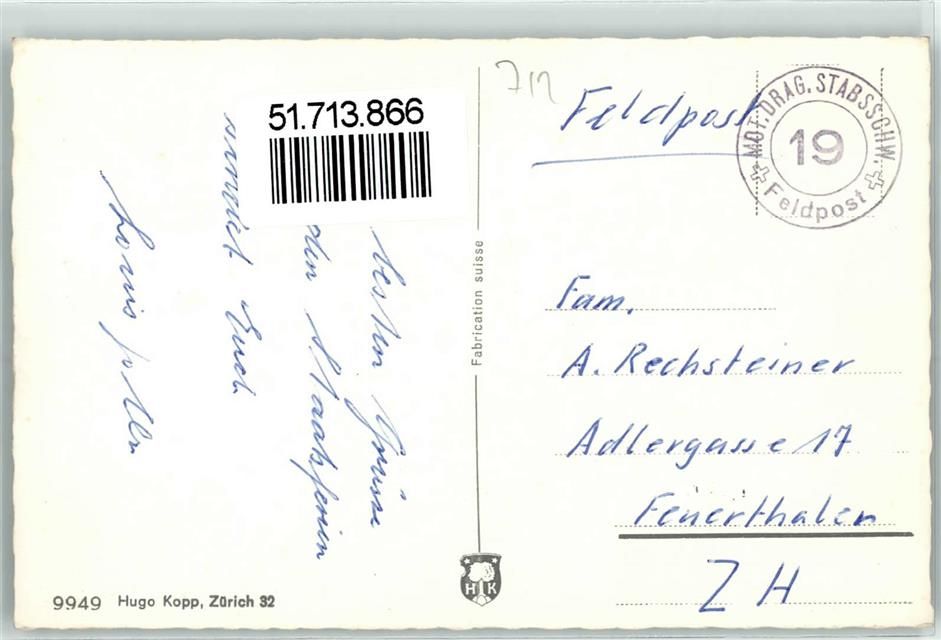 51.713.866
712
Feldpost
MOT. DRAG. STABSSCHW.
19
Feldpost
besten Grüsse
den Staatsferien
sendet Euch
Louis
Fabrication suisse
Fam.
A. Rechsteiner
Adlergasse 17
Feuerthalen
ZH
H K
9949 Hugo Kopp, Zürich 32